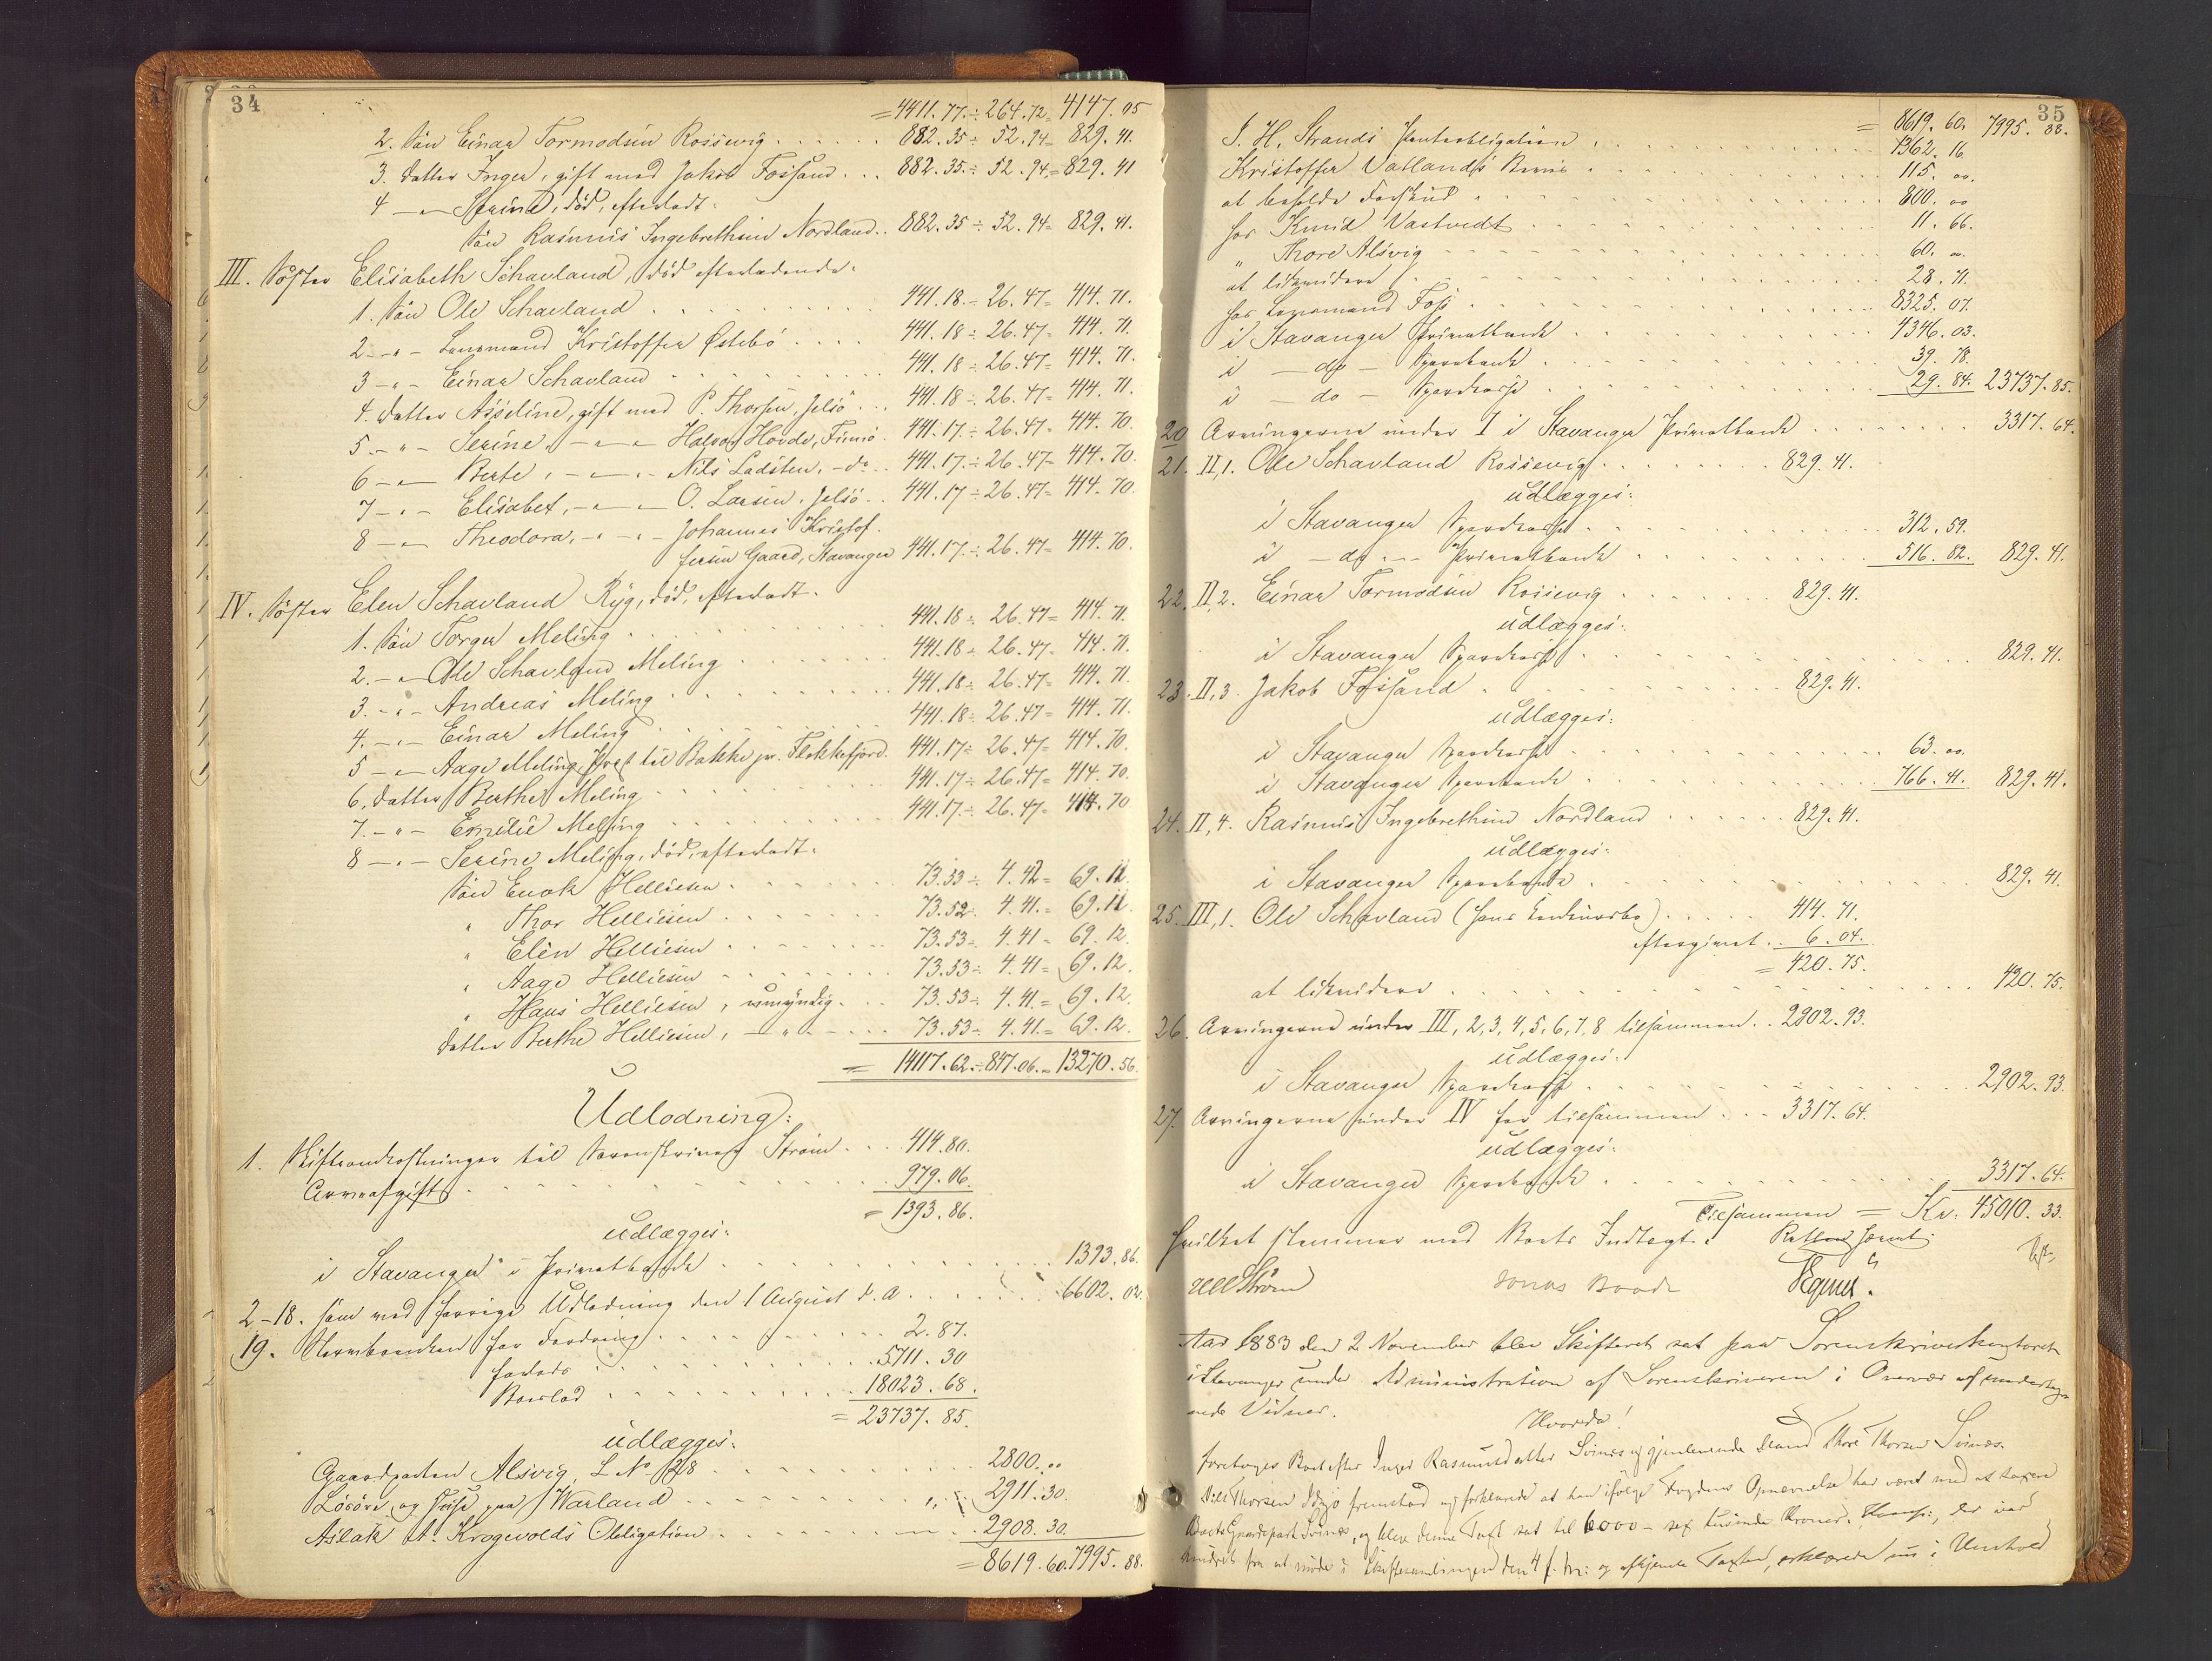 34
= 4411.77 ÷ 264.72 = 4147.05
2. Sön Einar Tormodsen Rossevig . . . . 882.35 ÷ 52.94 = 829.41.
3. Datter Inger, gift med Jakob Fossand . . . 882.35 ÷ 52.94 = 829.41
4 — „ — Serine, död, efterladt:
Sön Rasmus Ingebrethsen Nordland . . 882.35 ÷ 52.94 = 829.41.
III. Söster Elisabeth Schavland, död efterladende:
1. Sön Ole Schavland . . . 441.18 ÷ 26.47 = 414.71.
2 - „ - Lensmand Kristoffer Østebö . . . . 441.18 ÷ 26.47 = 414.71.
3 - „ - Einar Schavland . . . 441.18 ÷ 26.47 = 414.71.
4. Datter Asseline, gift med P. Thorsen, Jelsö . . . 441.18 ÷ 26.47 = 414.71.
5 - „ - Serine, — „ — Halvor Hovde, Finnö . 441.17 ÷ 26.47 = 414.70.
6 — „ — Berte, — „ — Nils Ladsten, - do . . 441.17 ÷ 26.47 = 414.70.
7 - „ - Elisabet, — „ — O. Larsen, Jelsö . . 441.17 ÷ 26.47 = 414.70.
8 — „ — Theodora, - „ - Johannes Kristof-
fersen Gaard, Stavanger 441.17 ÷ 26.47 = 414.70.
IV. Söster Elen Schavland Ryg, död, efterladt:
1. Sön Torger Meling . . . 441.18 ÷ 26.47 = 414.71.
2. - „ - Ole Schavland Meling . . . 441.18 ÷ 26.47 = 414.71.
3. - „ - Andreas Meling . . . 441.18 ÷ 26.47 = 414.71.
4. - „ - Einar Meling . . . 441.18 ÷ 26.47 = 414.71.
5 - „ - Aage Meling, Prest til Bakke pr. Flekkefjord. 441.17 ÷ 26.47 = 414.70.
6. Datter Berthe Meling . . . 441.17 ÷ 26.47 = 414.70.
7. - „ - Emelie Meling . . . 441.17 ÷ 26.47 = 414.70
8 — „ — Serine Meling, död, efterladt:
Sön Enok Helliesen . . . 73.53 ÷ 4.42 = 69.11.
„ Thor Helliesen . . . 73.52 ÷ 4.41 = 69.11.
„ Elen Helliesen . . . 73.53 ÷ 4.41 = 69.12.
„ Aage Helliesen . . . 73.53 ÷ 4.41 = 69.12.
„ Hans Helliesen, umyndig . . . 73.53 ÷ 4.41 = 69.12.
Datter Berthe Helliesen, — „ — . . . 73.53 ÷ 4.41 = 69.12.
= 14117.62 ÷ 847.06 = 13270.56.
Udlodning:
1. Skifteomkostninger til Sorenskriver Ström . . . 414.80.
Arveafgift . . . 979.06.
= 1393.86.
udlægges:
i Stavanger Privatbank . . . 1393.86.
2-18. som ved forrige Udlodning den 1 August d. A . . . 6602.02.
19. Norm for Fordring . . . 2.87.
forlods . . . 5711.30
Boeslod . . . 18023.68.
= 23737.85.
udlægges:
Gaardparten Alsvig, L No 28 . . . 2800.00
Lösöre og Huse paa Warland . . . 2911.30.
Aslak A. Krogevolds Obligation . . . 2908.30.
= 8619.60. 7995.88.
35
= 8619.60. 7995.88.
S. H. Strands Panteobligation . . . 1362.16
Kristoffer Vatlands Bevis . . . 115.00.
at beholde Forskud . . . 800.00
hos Knud Vastvedt . . . 11.66.
„ Thore Alsvig . . . 60.00.
at likvidere . . . 28.71.
hos Lensmand Foss . . . 8325.07.
i Stavanger Privatbank . . . 4346.03.
i — do — Sparebank . . . 39.78.
i — do — Sparekasse . . . 29.84. 23737.85.
20 Arvingerne under I i Stavanger Privatbank . . . 3317.64.
21. II, 1. Ole Schavland Rossevig . . . 829.41.
udlægges:
i Stavanger Sparekasse . . . 312.59.
i — do — Privatbank . . . 516.82. 829.41.
22. II, 2. Einar Tormodsen Rossevig . . . 829.41.
udlægges:
i Stavanger Sparekasse . . . 829.41.
23. II, 3. Jakob Fossand . . . 829.41.
udlægges:
i Stavanger Sparekasse . . . 63.00.
i Stavanger Sparebank . . . 766.41. 829.41.
24. II, 4. Rasmus Ingebrethsen Nordland . . . 829.41.
udlægges:
i Stavanger Sparebank . . . 829.41.
25. III, 1. Ole Schavland (hans . . . 414.71.
eftergivet . . 6.04.
= 420.75.
at likvidere . . . 420.75.
26. Arvingerne under III, 2, 3, 4, 5, 6, 7, 8 tilsammen . . 2902.93.
udlægges:
i Stavanger Sparekasse . . . 2902.93.
27. Arvingerne under IV faar tilsammen . . . 3317.64.
udlægges:
i Stavanger Sparebank . . . 3317.64.
Tilsammen = Kr. 45010.33.
hvilket stemmer med Boets Indtægt. Retten hævet.
Ström Jonas Boode
Aar 1883 den 2 November blev Skifteret sat paa Sorenskriverkontoret
i Stavanger under Administration af Sorenskriveren i Overvær af underteg-
nede Vidner.
Hvorda!
foretoges Boet efter Inger Rasmusdatter Svines og gjenlevende Mand Thore Thorsen Svines.
Nils Thorsen fremstod og forklarede at han ifølge Fogdens Opnævnelse har været med at taxere
Boets Gaardpart Svines, og blev denne Taxt sat til 6000 - sex tusinde Kroner. der var
hindret fra at møde i Skiftesamlingen den 4 f. M: og afhjemle Taxten, erklærede nu i Henhold